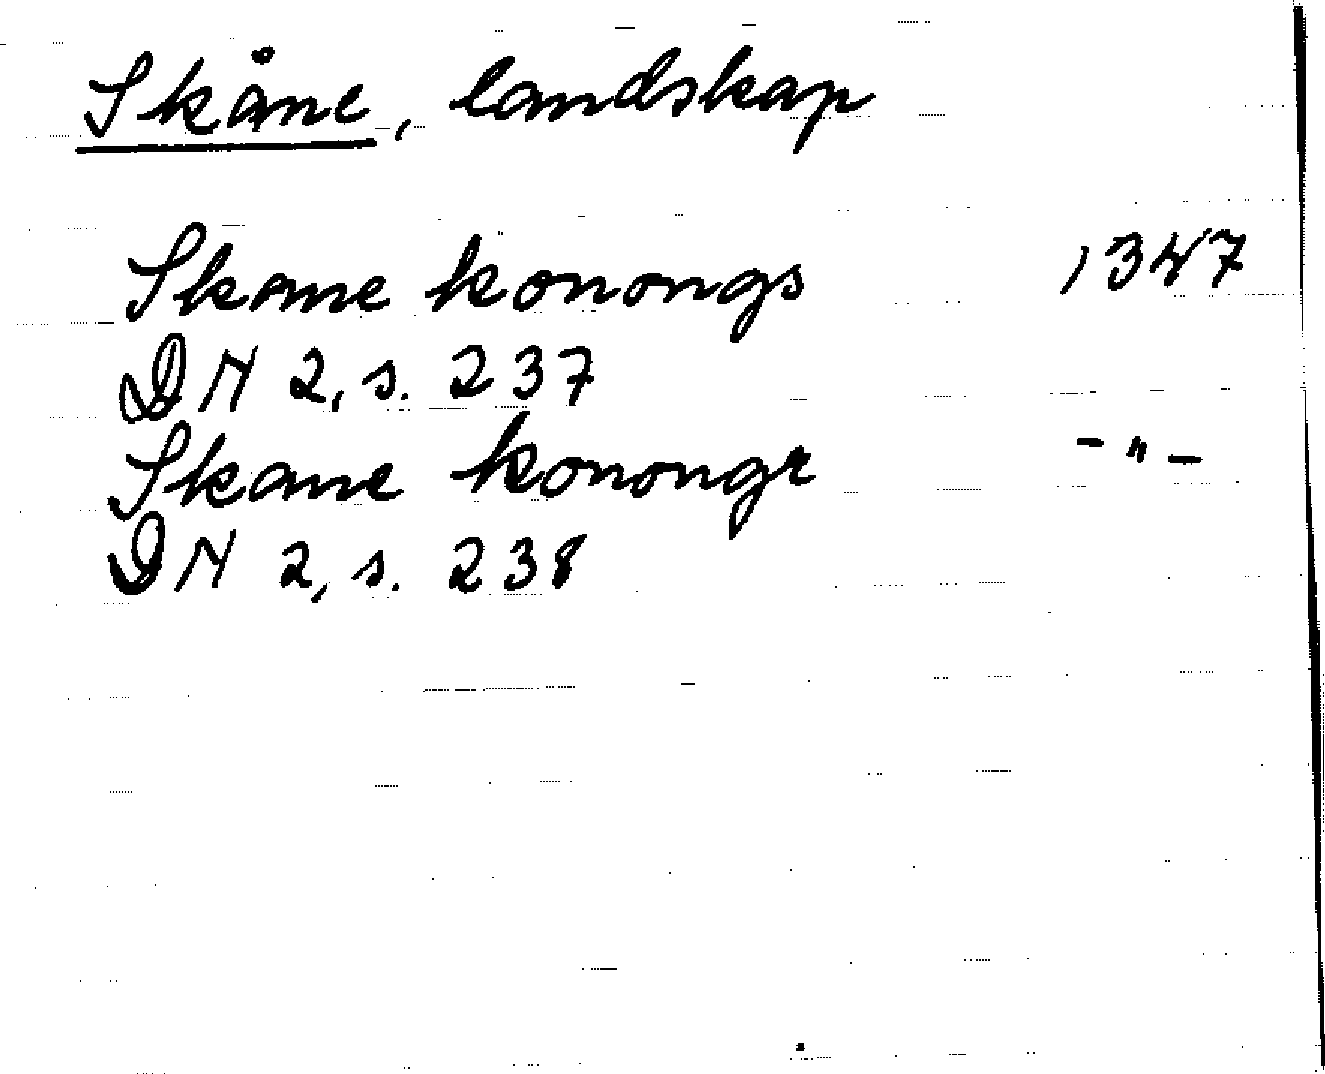 Skåne, landskap
Skane konongs 1347
DN 2, s. 237
Skane konongr -"-
DN 2, s. 238